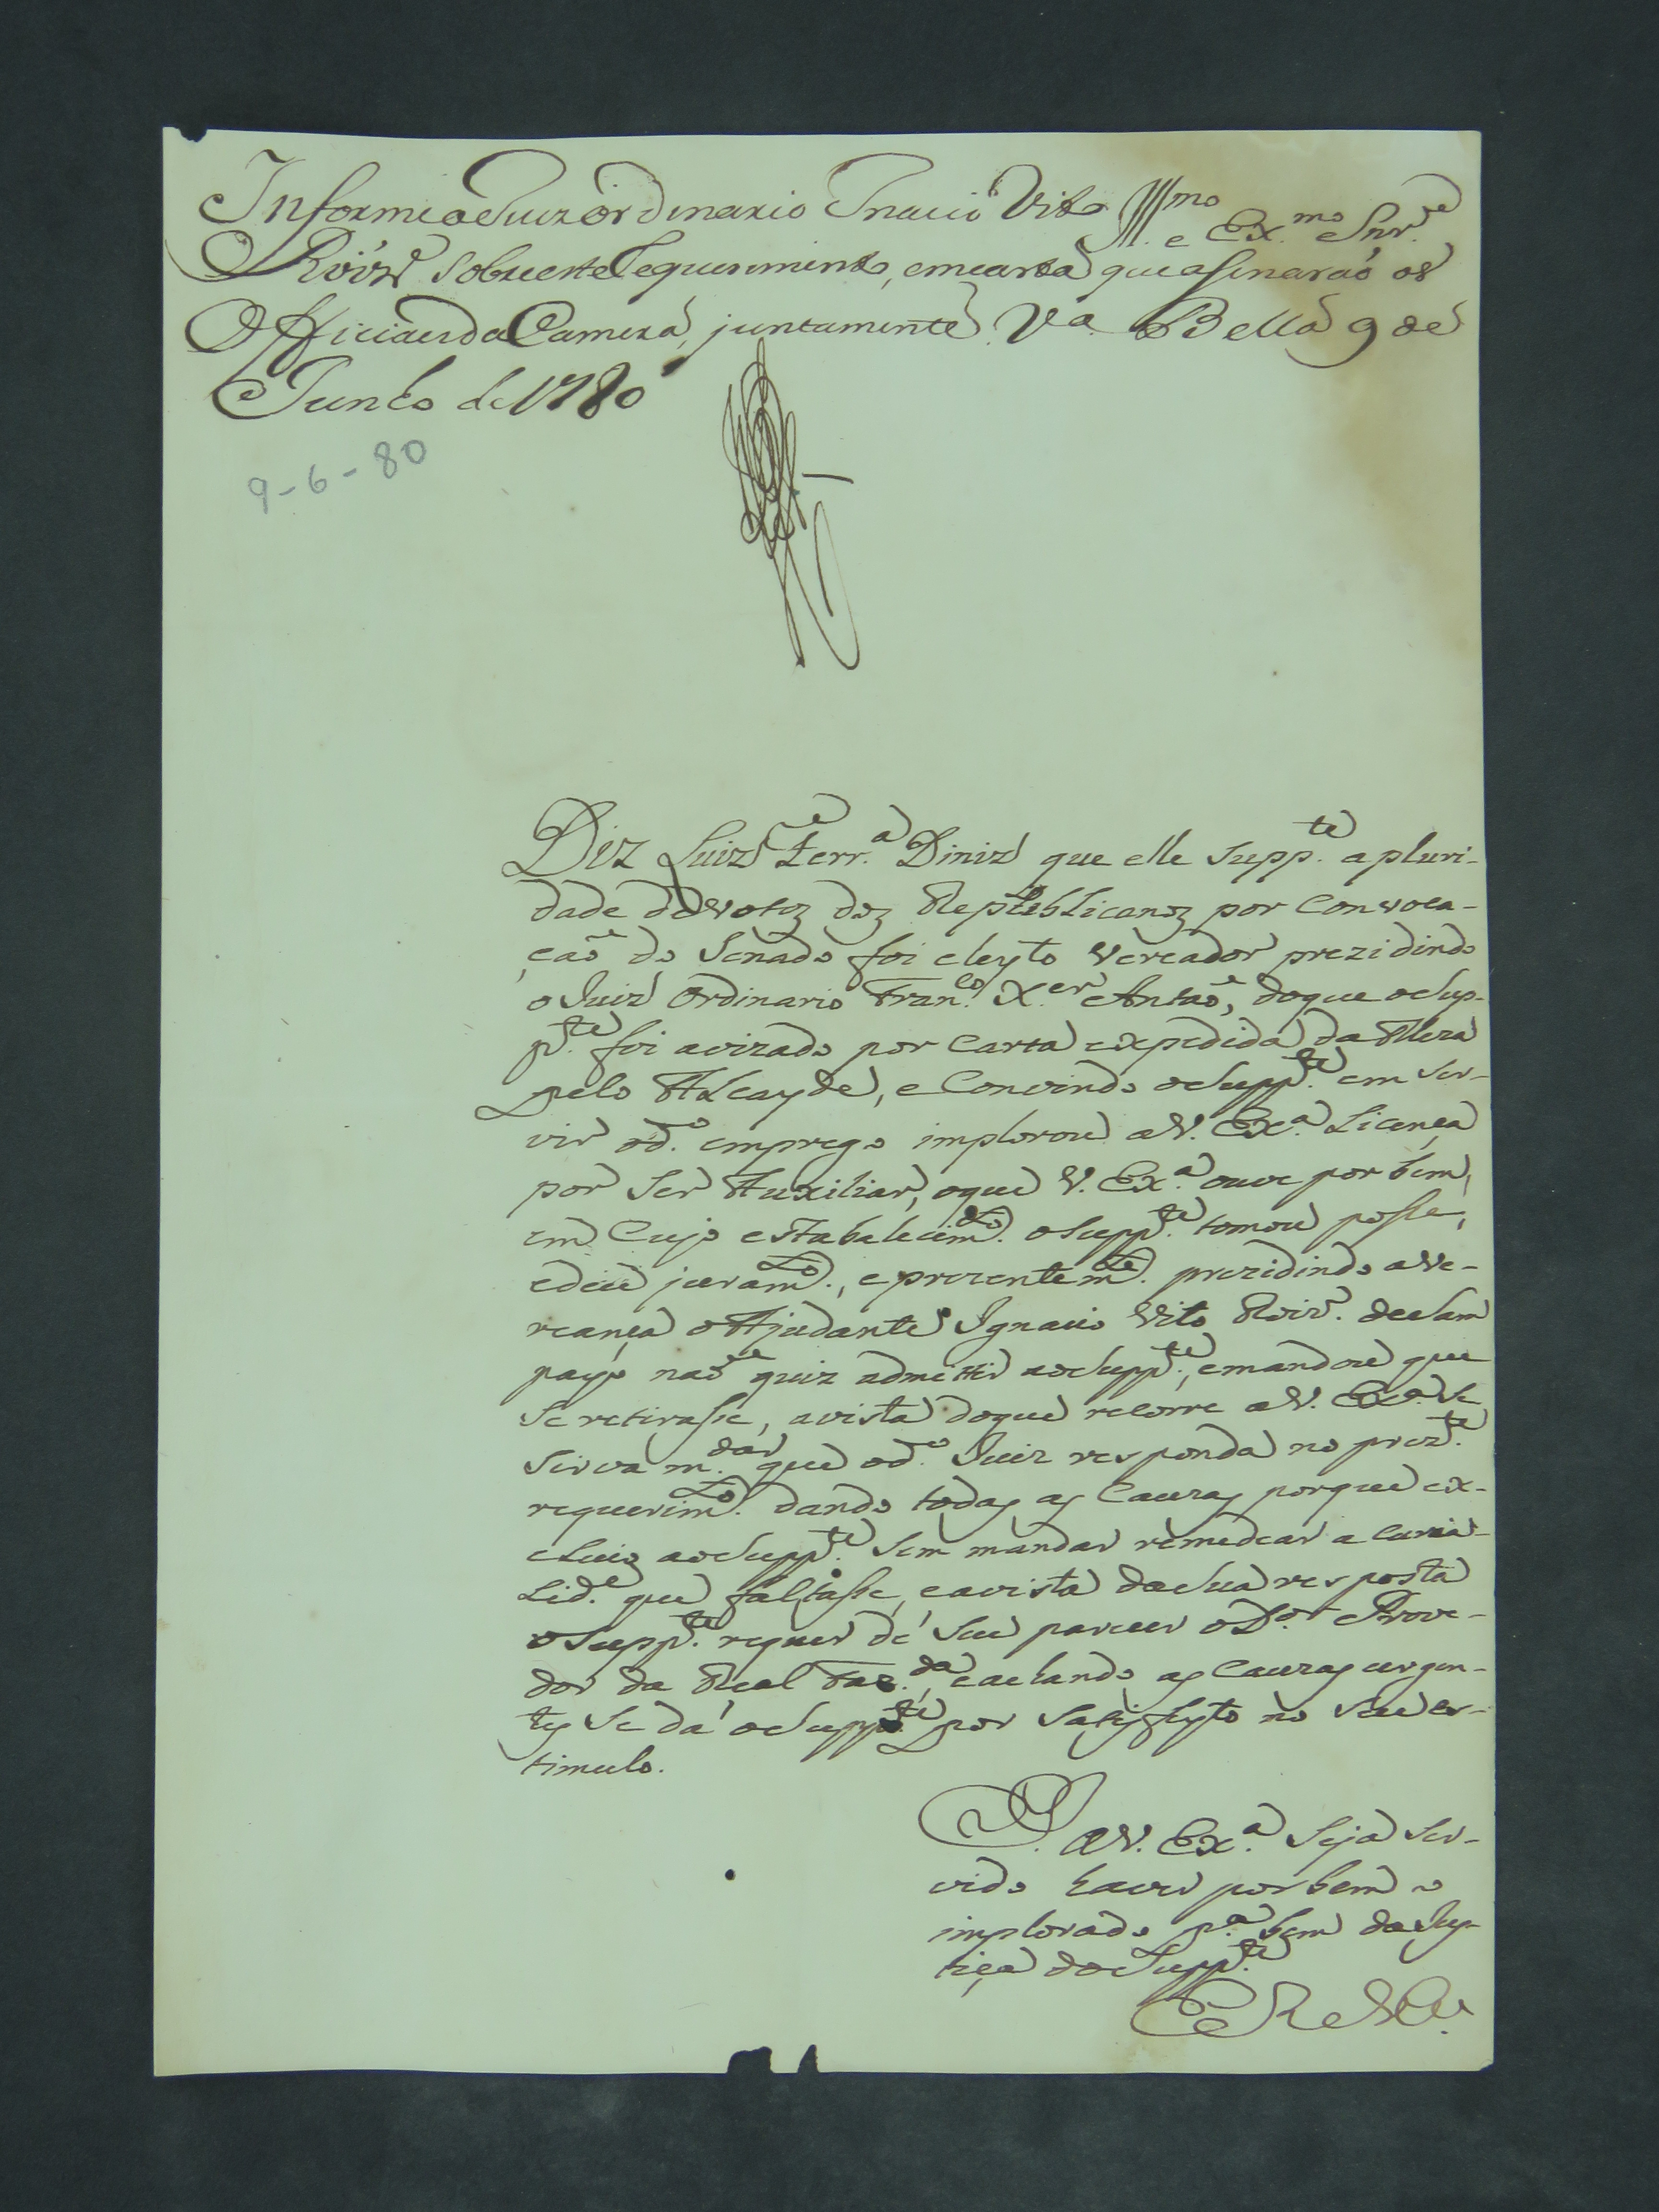 Informe o Juiz ordinario Inacio Vito Ill.mo e Ex.mo Snr.
Roiz' sobre este Requerimento, em carta que asinaraó os
Officiaes da Camera, juntamente. V.a Bella 9 de
Junho de 1780
9-6-80
Diz Luiz Ferr.a Diniz que elle Supp.te a pluri-
dade de votos dos Republicanos por Convoca-
çaõ do Senado foi eleyto Vereador prezidindo
o Juiz Ordinario Fran.co X.er Antaõ, do que o Sup-
p.te foi avizado por Carta expedida da Meza
pelo Alcayde, e Convindo o Supp.te em Ser-
vir o d.o emprego implorou a V. Ex.a Licença
por Ser Auxiliar, o que V. Ex.a ouve por bem,
em Cujo estabalecim.to o Supp.te tomou posse,
e deu juram.to, e prezentem.te prezidindo a Ve-
reança o Ajudante Ignacio Vito Roiz'. de Sam
payo naõ quiz admittir ao Supp.te, e mandou que
Se retirasse, a vista do que recorre a V. Ex.a Se
Sirva m.dar que o d.o Juiz responda no prez.te
requerim.to dando todas as Cauzas porque ex-
cluio ao Supp.te Sem mandar remedear a
Lid.e que faltasse, e a vista da Sua resposta
o Supp.te requer dé Seu parecer o D.or Prove-
dor da Real Faz.da, e achando as Cauzas urgen-
tes Se dá o Supp.te por Satisfeyto no Seu es-
timulo.
P. a V. Ex.a Seja Ser-
vido haver por bem o
implorado p.a bem da Jus-
tiça do Supp.te
E R M.ce